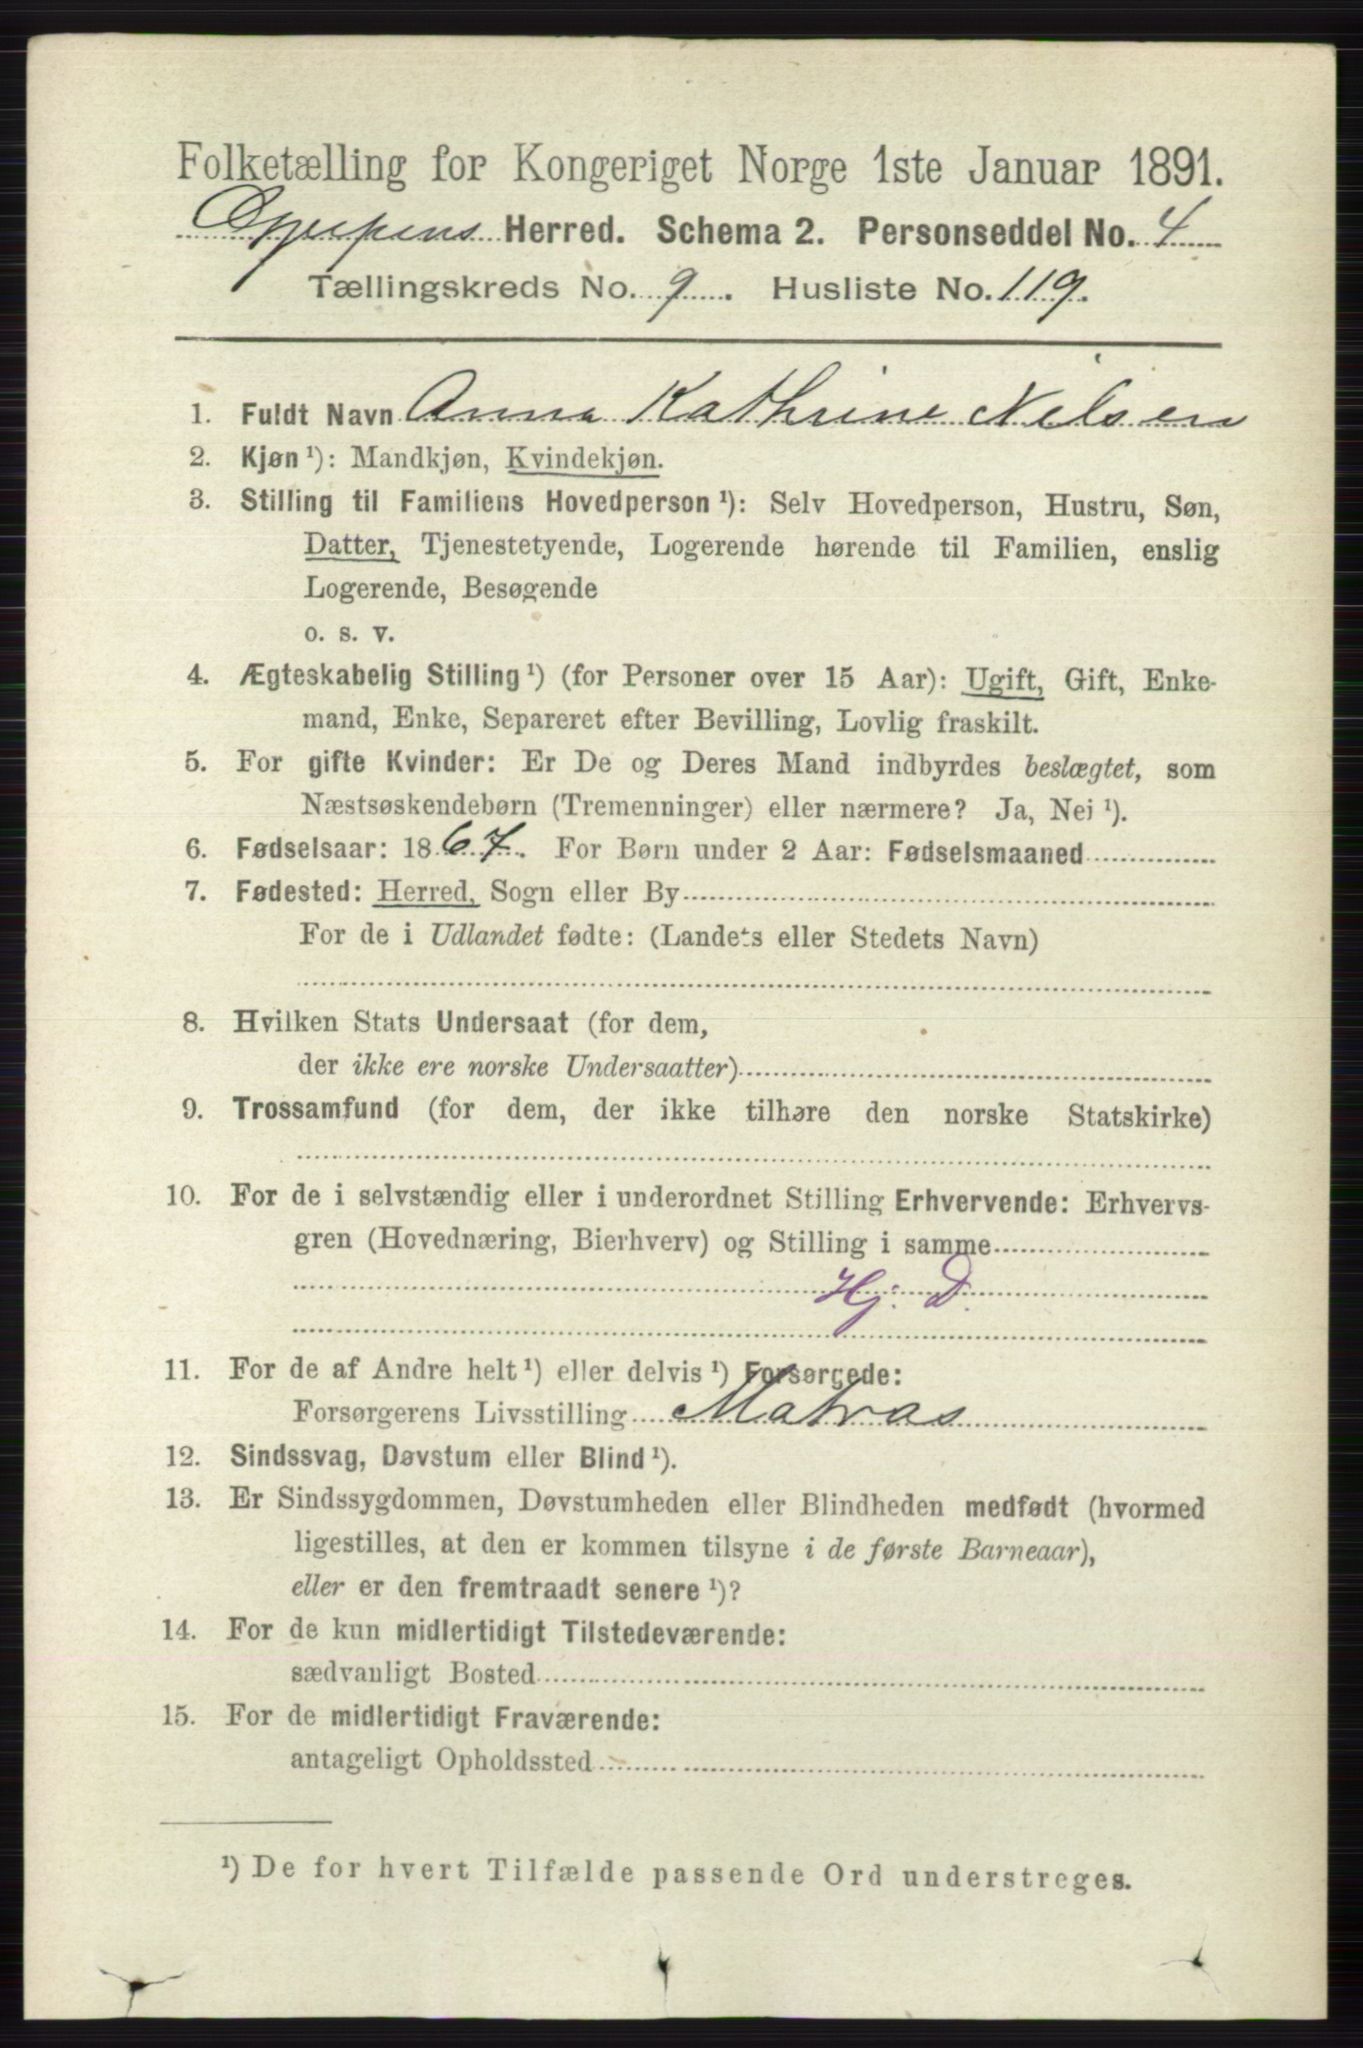 Folketælling for Kongeriget Norge 1ste Januar 1891.
Gjerpens Herred. Schema 2. Personseddel No. 4
Tællingskreds No. 9. Husliste No. 119.
1. Fuldt Navn Anna Kathrine Nilsen
2. Kjøn ¹): Mandkjøn, Kvindekjøn.
3. Stilling til Familiens Hovedperson ¹): Selv Hovedperson, Hustru, Søn,
Datter, Tjenestetyende, Logerende hørende til Familien, enslig
Logerende, Besøgende
o. s. v.
4. Ægteskabelig Stilling ¹) (for Personer over 15 Aar): Ugift, Gift, Enke-
mand, Enke, Separeret efter Bevilling, Lovlig fraskilt.
5. For gifte Kvinder: Er De og Deres Mand indbyrdes beslægtet, som
Næstsøskendebørn (Tremenninger) eller nærmere? Ja, Nei ¹).
6. Fødselsaar: 1867. For Børn under 2 Aar: Fødselsmaaned
7. Fødested: Herred, Sogn eller By
For de i Udlandet fødte: (Landets eller Stedets Navn)
8. Hvilken Stats Undersaat (for dem,
der ikke ere norske Undersaatter)
9. Trossamfund (for dem, der ikke tilhøre den norske Statskirke)
10. For de i selvstændig eller i underordnet Stilling Erhvervende: Erhvervs-
gren (Hovednæring, Bierhverv) og Stilling i samme
Hj. D.
11. For de af Andre helt ¹) eller delvis ¹) Forsørgede:
Forsørgerens Livsstilling Matros
12. Sindssvag, Døvstum eller Blind ¹).
13. Er Sindssygdommen, Døvstumheden eller Blindheden medfødt (hvormed
ligestilles, at den er kommen tilsyne i de første Barneaar),
eller er den fremtraadt senere ¹)?
14. For de kun midlertidigt Tilstedeværende:
sædvanligt Bosted
15. For de midlertidigt Fraværende:
antageligt Opholdssted
¹) De for hvert Tilfælde passende Ord understreges.